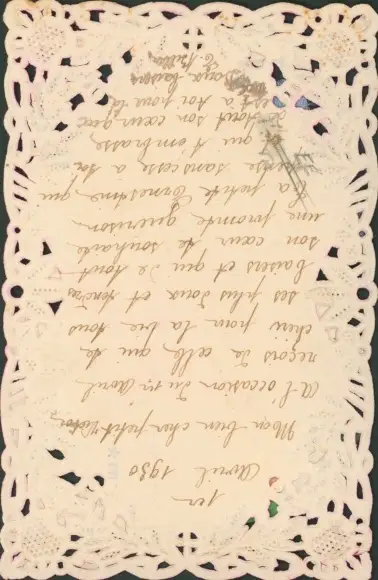 1er
Avril 1930
Mon bien cher petit Victor
A l'occasion du 1er Avril
reçois de celle qui de
chéri pour la vie tous
ses plus doux et tendres
baisers et qui de tout
son cœur te souhaite
une prompte guérison
Ta petite Ernestine qui
pense sans cesse a toi
et qui t'embrasse
de tout son cœur qui
est a toi pour la